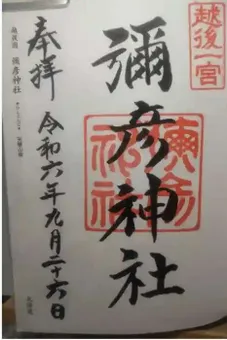 越後一宮
彌彦神社
奉拝
令和六年九月二十六日
越後国 彌彦神社